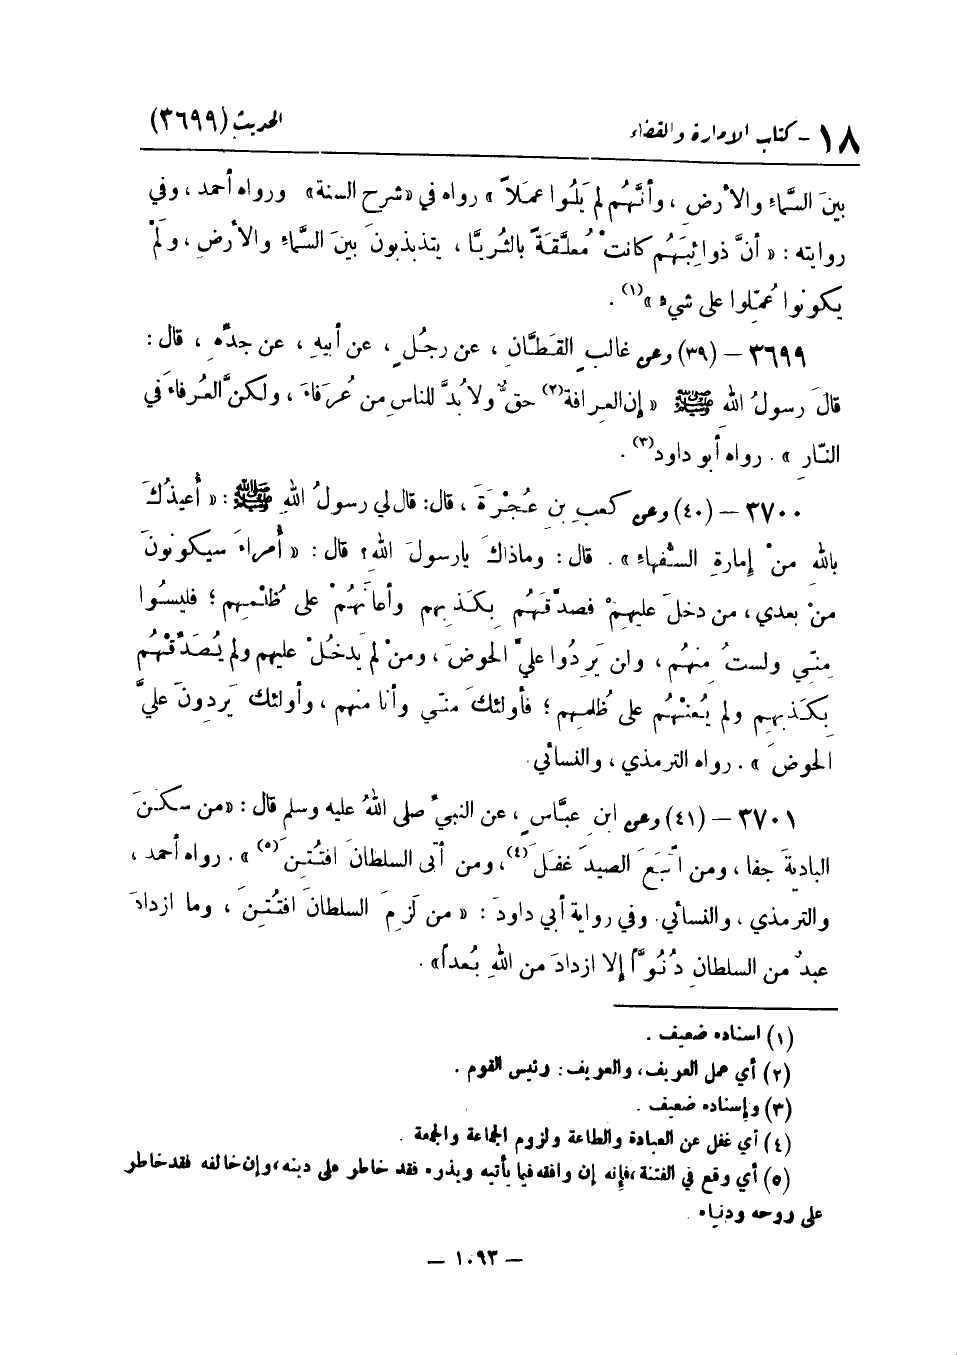 ١٨ - كتاب الامارة والقضاء الحديث (٣٦٩٩)
بينَ السَّماءِ والأرضِ ، وأنَّهُم لم يَلُوا عملاً » رواه في «شرح السنة» ورواه أحمد ، وفي
روايته : « أنَّ ذوائِبَهُم كانتْ مُعلَّقةً بالثريَّا ، يتذبذبونَ بينَ السَّماءِ والأرضِ ، ولَمْ
يكونوا عُمِّلوا على شيءٍ »(١) .
٣٦٩٩ - (٣٩) وعن غالبٍ القَطَّانِ ، عن رجُلٍ ، عن أبيهِ ، عن جدِّهِ ، قال :
قالَ رسولُ اللهِ ﷺ « إن العِرافة(٢) حقٌّ ولا بُدَّ للناسِ من عُرَفاءَ ، ولكنَّ العُرفاءَ في
النّارِ » . رواه أبو داود(٣) .
٣٧٠٠ - (٤٠) وعن كعبِ بنِ عُجْرَةَ ، قال: قال لي رسولُ اللهِ ﷺ : « أُعيذُكَ
باللهِ منْ إمارةِ السُّفهاءِ » . قال : وماذاكَ يارسولَ اللهِ ؟ قال : « أُمراءَ سيكونونَ
منْ بعدي ، من دخلَ عليهمْ فصدَّقَهُم بِكَذِبهم وأعانَهُمْ على ظُلْمِهم ؛ فليسُوا
مِنّي ولستُ مِنهُم ، ولن يَرِدُوا عليَّ الحوضَ ، ومنْ لم يَدخُلْ عليهم ولم يُصَدِّقْهُم
بكَذبهم ولم يُعنْهُم على ظُلمِهم ؛ فأولئكَ منّي وأنا منهم ، وأولئك يَردونَ عليَّ
الحوضَ » . رواه الترمذي ، والنسائي .
٣٧٠١ - (٤١) وعن ابنِ عبَّاسٍ ، عن النبيِّ صلى اللهُ عليه وسلم قال : «من سكنَ
الباديةَ جفا ، ومن اتّبَعَ الصيدَ غفَلَ(٤)، ومن أتى السلطانَ افتُتِنَ(٥) » . رواه أحمد ،
والترمذي ، والنسائي . وفي رواية أبي داودَ : « من لَزِمَ السلطانَ افتُتِنَ ، وما ازدادَ
عبدٌ من السلطانِ دُنُوَّاً إلا ازدادَ من اللهِ بُعداً» .
(١) اسناده ضعيف .
(٢) أي عمل العريف، والعريف: رئيس القوم .
(٣) وإسناده ضعيف .
(٤) أي غفل عن العبادة والطاعة ولزوم الجماعة والجمعة .
(٥) أي وقع في الفتنة ،فإنه إن وافقه فيما يأتيه ويذره فقد خاطر على دينه ،وإن خالفه فقد خاطر
على روحه ودنياه .
— ١٠٩٣ —